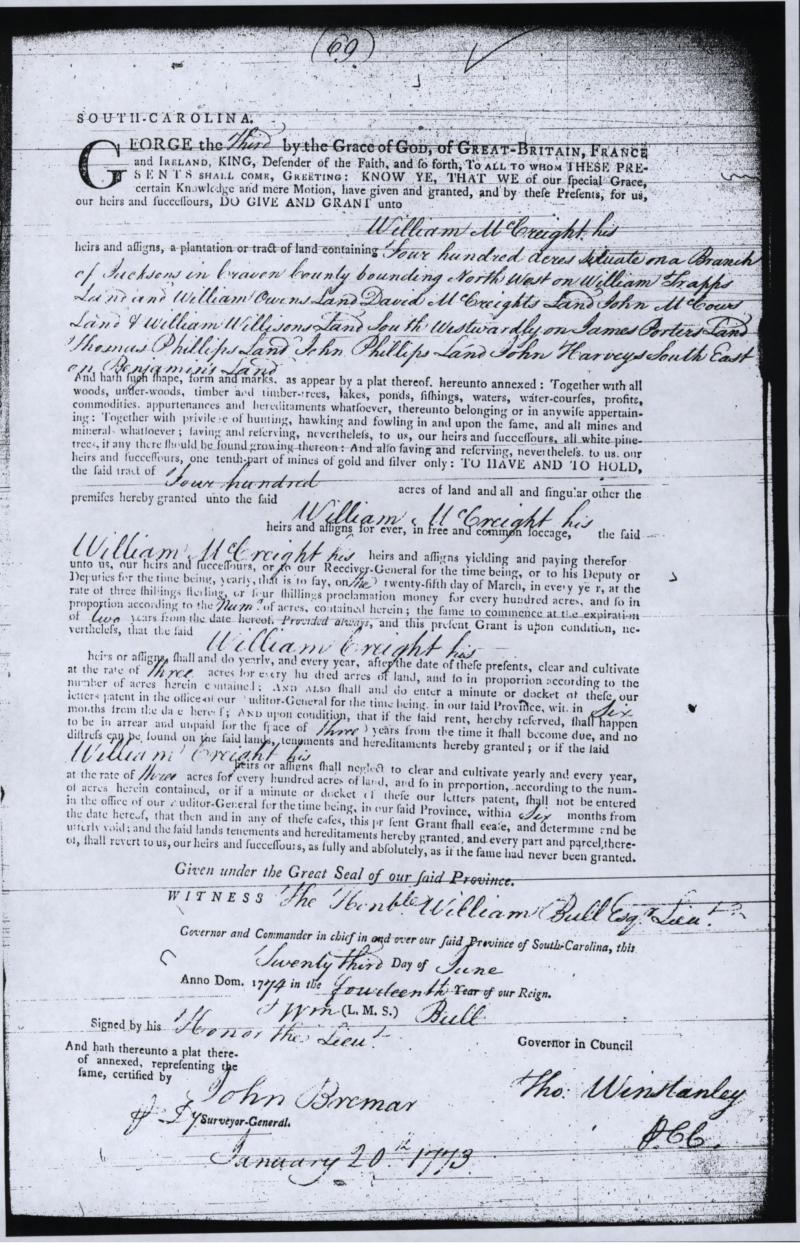 (69)
SOUTH-CAROLINA.
GEORGE the Third by the Grace of GOD, of GREAT-BRITAIN, FRANCE
and IRELAND, KING, Defender of the Faith, and so forth, TO ALL TO WHOM THESE PRE-
SENTS SHALL COME, GREETING: KNOW YE, THAT WE of our special Grace,
certain Knowledge and mere Motion, have given and granted, and by these Presents, for us,
our heirs and successours, DO GIVE AND GRANT unto
William McCreight his
heirs and assigns, a plantation or tract of land containing Four hundred acres situate on a Branch
of Jacksons in Craven County bounding North West on William Frapps
Land and William Owens Land David McCreights Land John McCows
Land & William Willisons Land South Westwardly on James Porters Land
Thomas Phillips Land John Phillips Land John Harveys South East
on Benjamins Land
And hath such shape, form and marks, as appear by a plat thereof, hereunto annexed: Together with all
woods, under-woods, timber and timber-trees, lakes, ponds, fishings, waters, water-courses, profits,
commodities, appurtenances and hereditaments whatsoever, thereunto belonging or in anywise appertain-
ing: Together with privilege of hunting, hawking and fowling in and upon the same, and all mines and
minerals whatsoever; saving and reserving, nevertheless, to us, our heirs and successours, all white pine-
trees, if any there should be found growing thereon: And also saving and reserving, nevertheless, to us, our
heirs and successours, one tenth-part of mines of gold and silver only: TO HAVE AND TO HOLD,
the said tract of Four hundred acres of land and all and singular other the
premises hereby granted unto the said
William McCreight his
heirs and assigns for ever, in free and common soccage, the said
William McCreight his heirs and assigns yielding and paying therefor
unto us, our heirs and successours, or to our Receiver-General for the time being, or to his Deputy or
Deputies for the time being, yearly, that is to say, on the twenty-fifth day of March, in every year, at the
rate of three shillings sterling, or four shillings proclamation money for every hundred acres, and so in
proportion according to the Numr. of acres, contained herein; the same to commence at the expiration
of two years from the date hereof. Provided always, and this present Grant is upon condition, ne-
vertheless, that the said William Creight his
heirs or assigns, shall and do yearly, and every year, after the date of these presents, clear and cultivate
at the rate of three acres for every hundred acres of land, and so in proportion according to the
number of acres herein contained; AND ALSO shall and do enter a minute or docket of these our
letters patent in the office of our Auditor-General for the time being, in our said Province, within Six
months from the date hereof; AND upon condition, that if the said rent, hereby reserved, shall happen
to be in arrear and unpaid for the space of three years from the time it shall become due, and no
distress can be found on the said lands, tenements and hereditaments hereby granted; or if the said
William Creight his
heirs or assigns shall neglect to clear and cultivate yearly and every year,
at the rate of three acres for every hundred acres of land, and so in proportion, according to the num-
of acres herein contained, or if a minute or docket of these our letters patent, shall not be entered
in the office of our Auditor-General for the time being, in our said Province, within Six months from
the date hereof, that then and in any of these cases, this present Grant shall cease, and determine and be
utterly void; and the said lands tenements and hereditaments hereby granted, and every part and parcel, there-
of, shall revert to us, our heirs and successours, as fully and absolutely, as if the same had never been granted.
Given under the Great Seal of our said Province.
WITNESS The Honble. William Bull Esqr. Lieut.
Governor and Commander in chief in and over our said Province of South-Carolina, this
Twenty third Day of June
Anno Dom. 1774 in the fourteenth Year of our Reign.
Wm (L. M. S.) Bull
Signed by his Honor the Lieut. Governor in Council
And hath thereunto a plat there-
of annexed, representing the
same, certified by
John Bremar
Surveyor-General.
Tho: Winstanley
DCC.
January 20th 1773